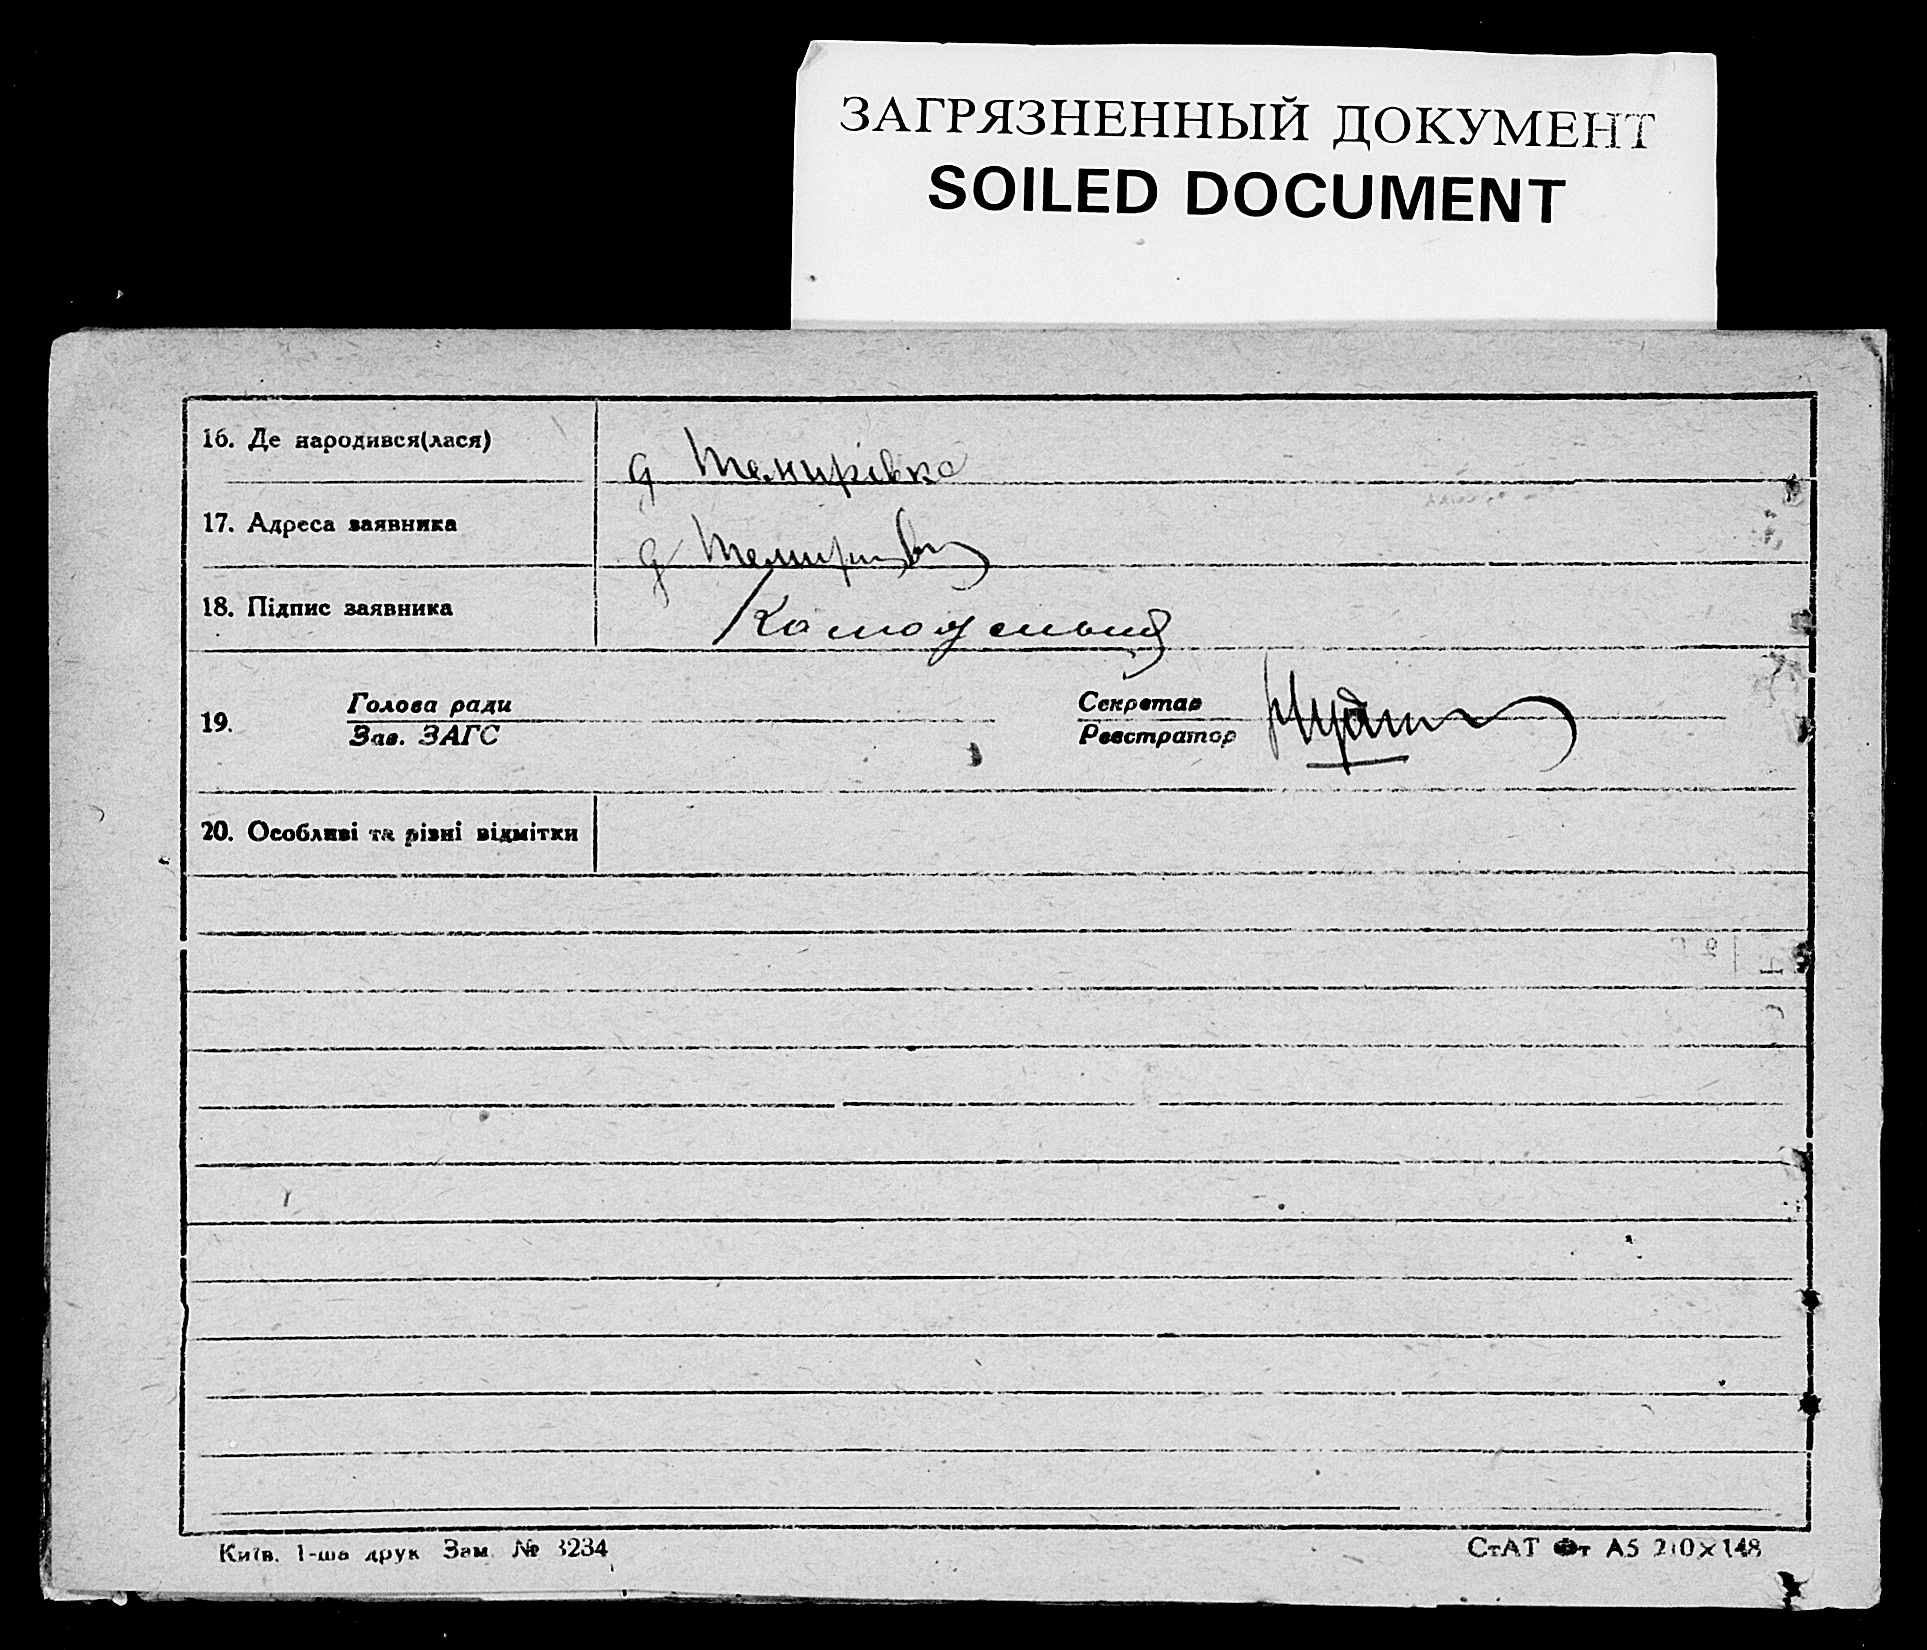 ЗАГРЯЗНЕННЫЙ ДОКУМЕНТ
SOILED DOCUMENT
16. Де народився(лася)
д Темирівка
17. Адреса заявника
д
18. Підпис заявника
19. Голова ради
Зав. ЗАГС
Секретар
Реєстратор
20. Особливі та різні відмітки
Київ. 1-ша друк Зам. № 3234
СтАТ Фт А5 210×148